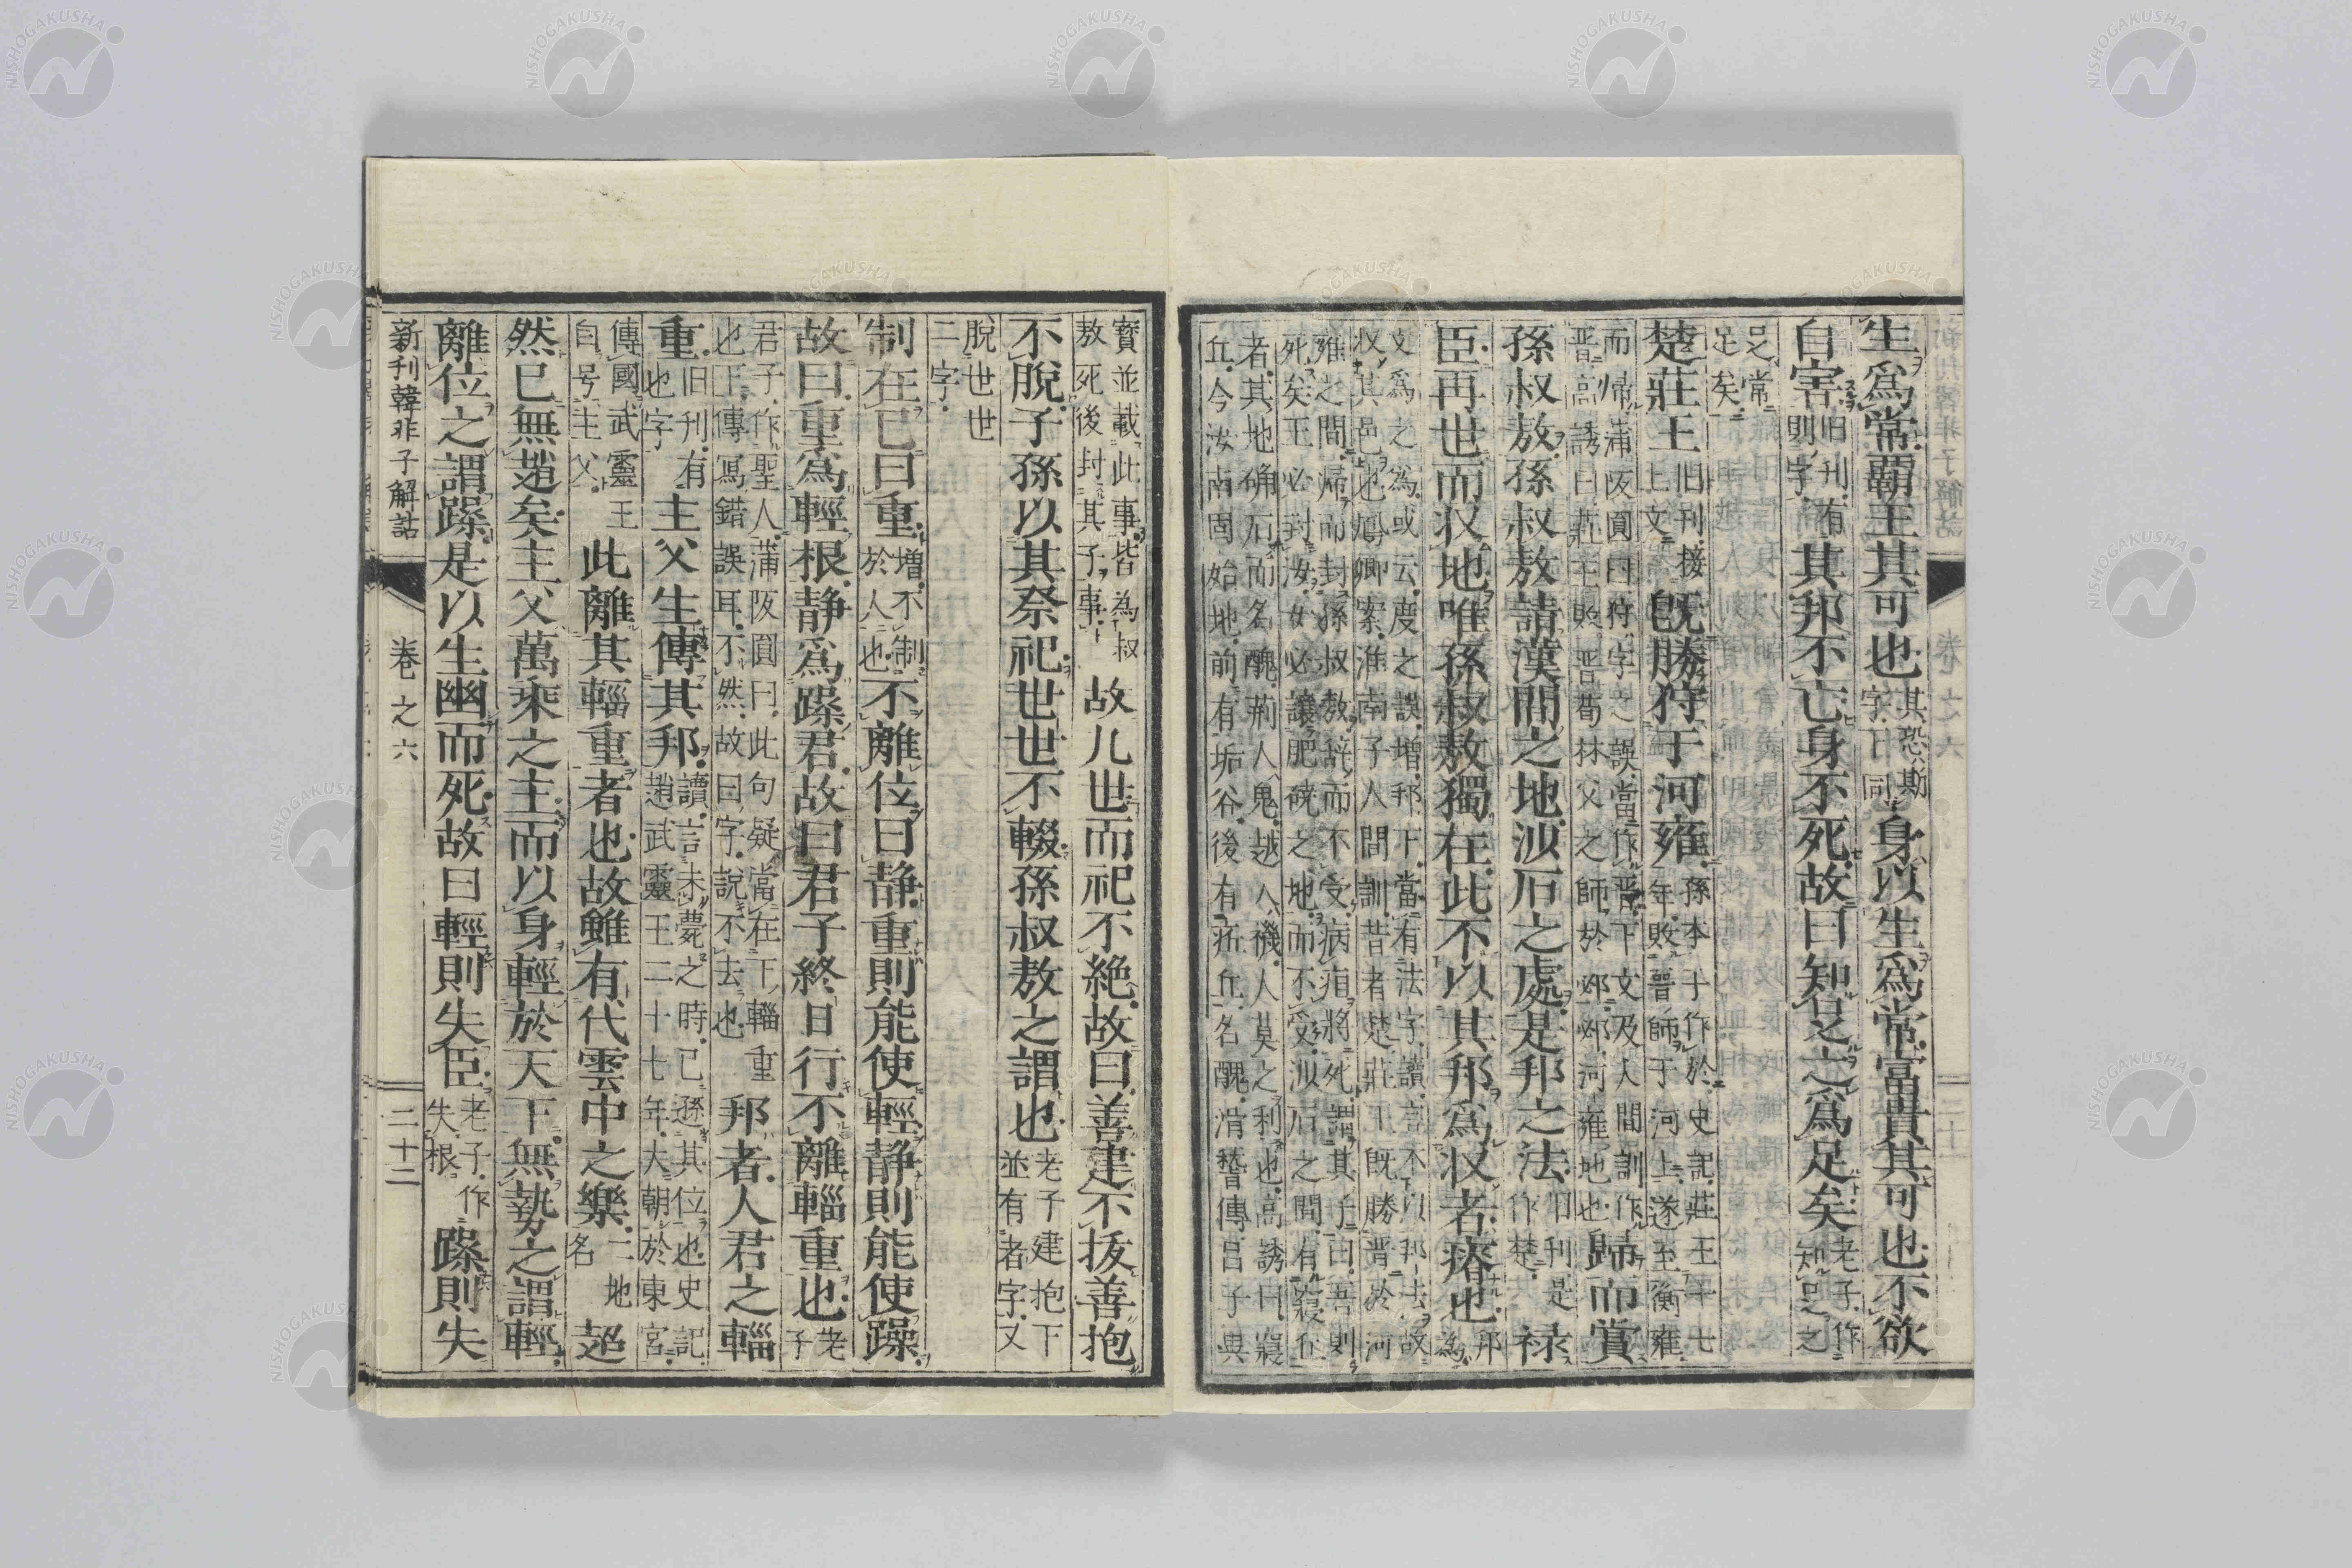 生爲常霸王其可也其恐斯字下同身以生爲常富貴其可也不欲
自害旧刊有則字其邦不亡身不死故曰知足之爲足矣老子作知足之
足常足矣
楚莊王旧刊接上文既勝狩于河雍孫本于作於史記莊王十七年敗晋師于河上遂至衡雍
而帰蒲阪圓曰狩字之誤當作晋下文及人間訓作晋高誘曰莊王敗晋荀林父之師於邲邲河雍地也歸而賞
孫叔敖孫叔敖請漢間之地沙石之處是邦之法旧刊是作楚禄
臣再世而収地唯孫叔敖獨在此不以其邦爲収者瘠也邦爲
文爲之為或云度之誤増邦下當有法字讀言不以邦法故収其邑也鳳卿案淮南子人間訓昔者楚莊王既勝晋於河
雍之間帰而封孫叔敖辞而不受病疽將死謂其子曰吾則死矣王必封汝女必讓肥磽之地而不受沙石之間有寢丘
者其地确石而名醜荊人鬼越人禨人莫之利也高誘曰寢丘今汝南固始地前有垢谷後有㽵丘名醜滑稽傳呂子典
寶並載此事皆為叔敖死後封其子事故九世而祀不絶故曰善建不抜善抱
不脫子孫以其祭祀世世不輟孫叔敖之謂也老子建抱下並有者字又
脫世世二字
制在已曰重増不制於人也不離位曰静重則能使輕静則能使躁
故曰重爲輕根静爲躁君故曰君子終日行不離輜重也老子
君子作聖人蒲阪圓曰此句疑當在下輜重也下傳寫錯誤耳不然故曰字説不去也邦者人君之輜
重旧刊有也字主父生傳其邦讀言未薨之時已遜其位也史記趙武靈王二十七年大朝於東宮
傳國武靈王自号主父此離其輜重者也故雖有代雲中之樂二地名超
然已無趙矣主父萬乘之主而以身輕於天下無勢之謂輕
離位之謂躁是以生幽而死故曰輕則失臣老子作失根躁則失
新刊韓非子解詁 卷之六 二十二